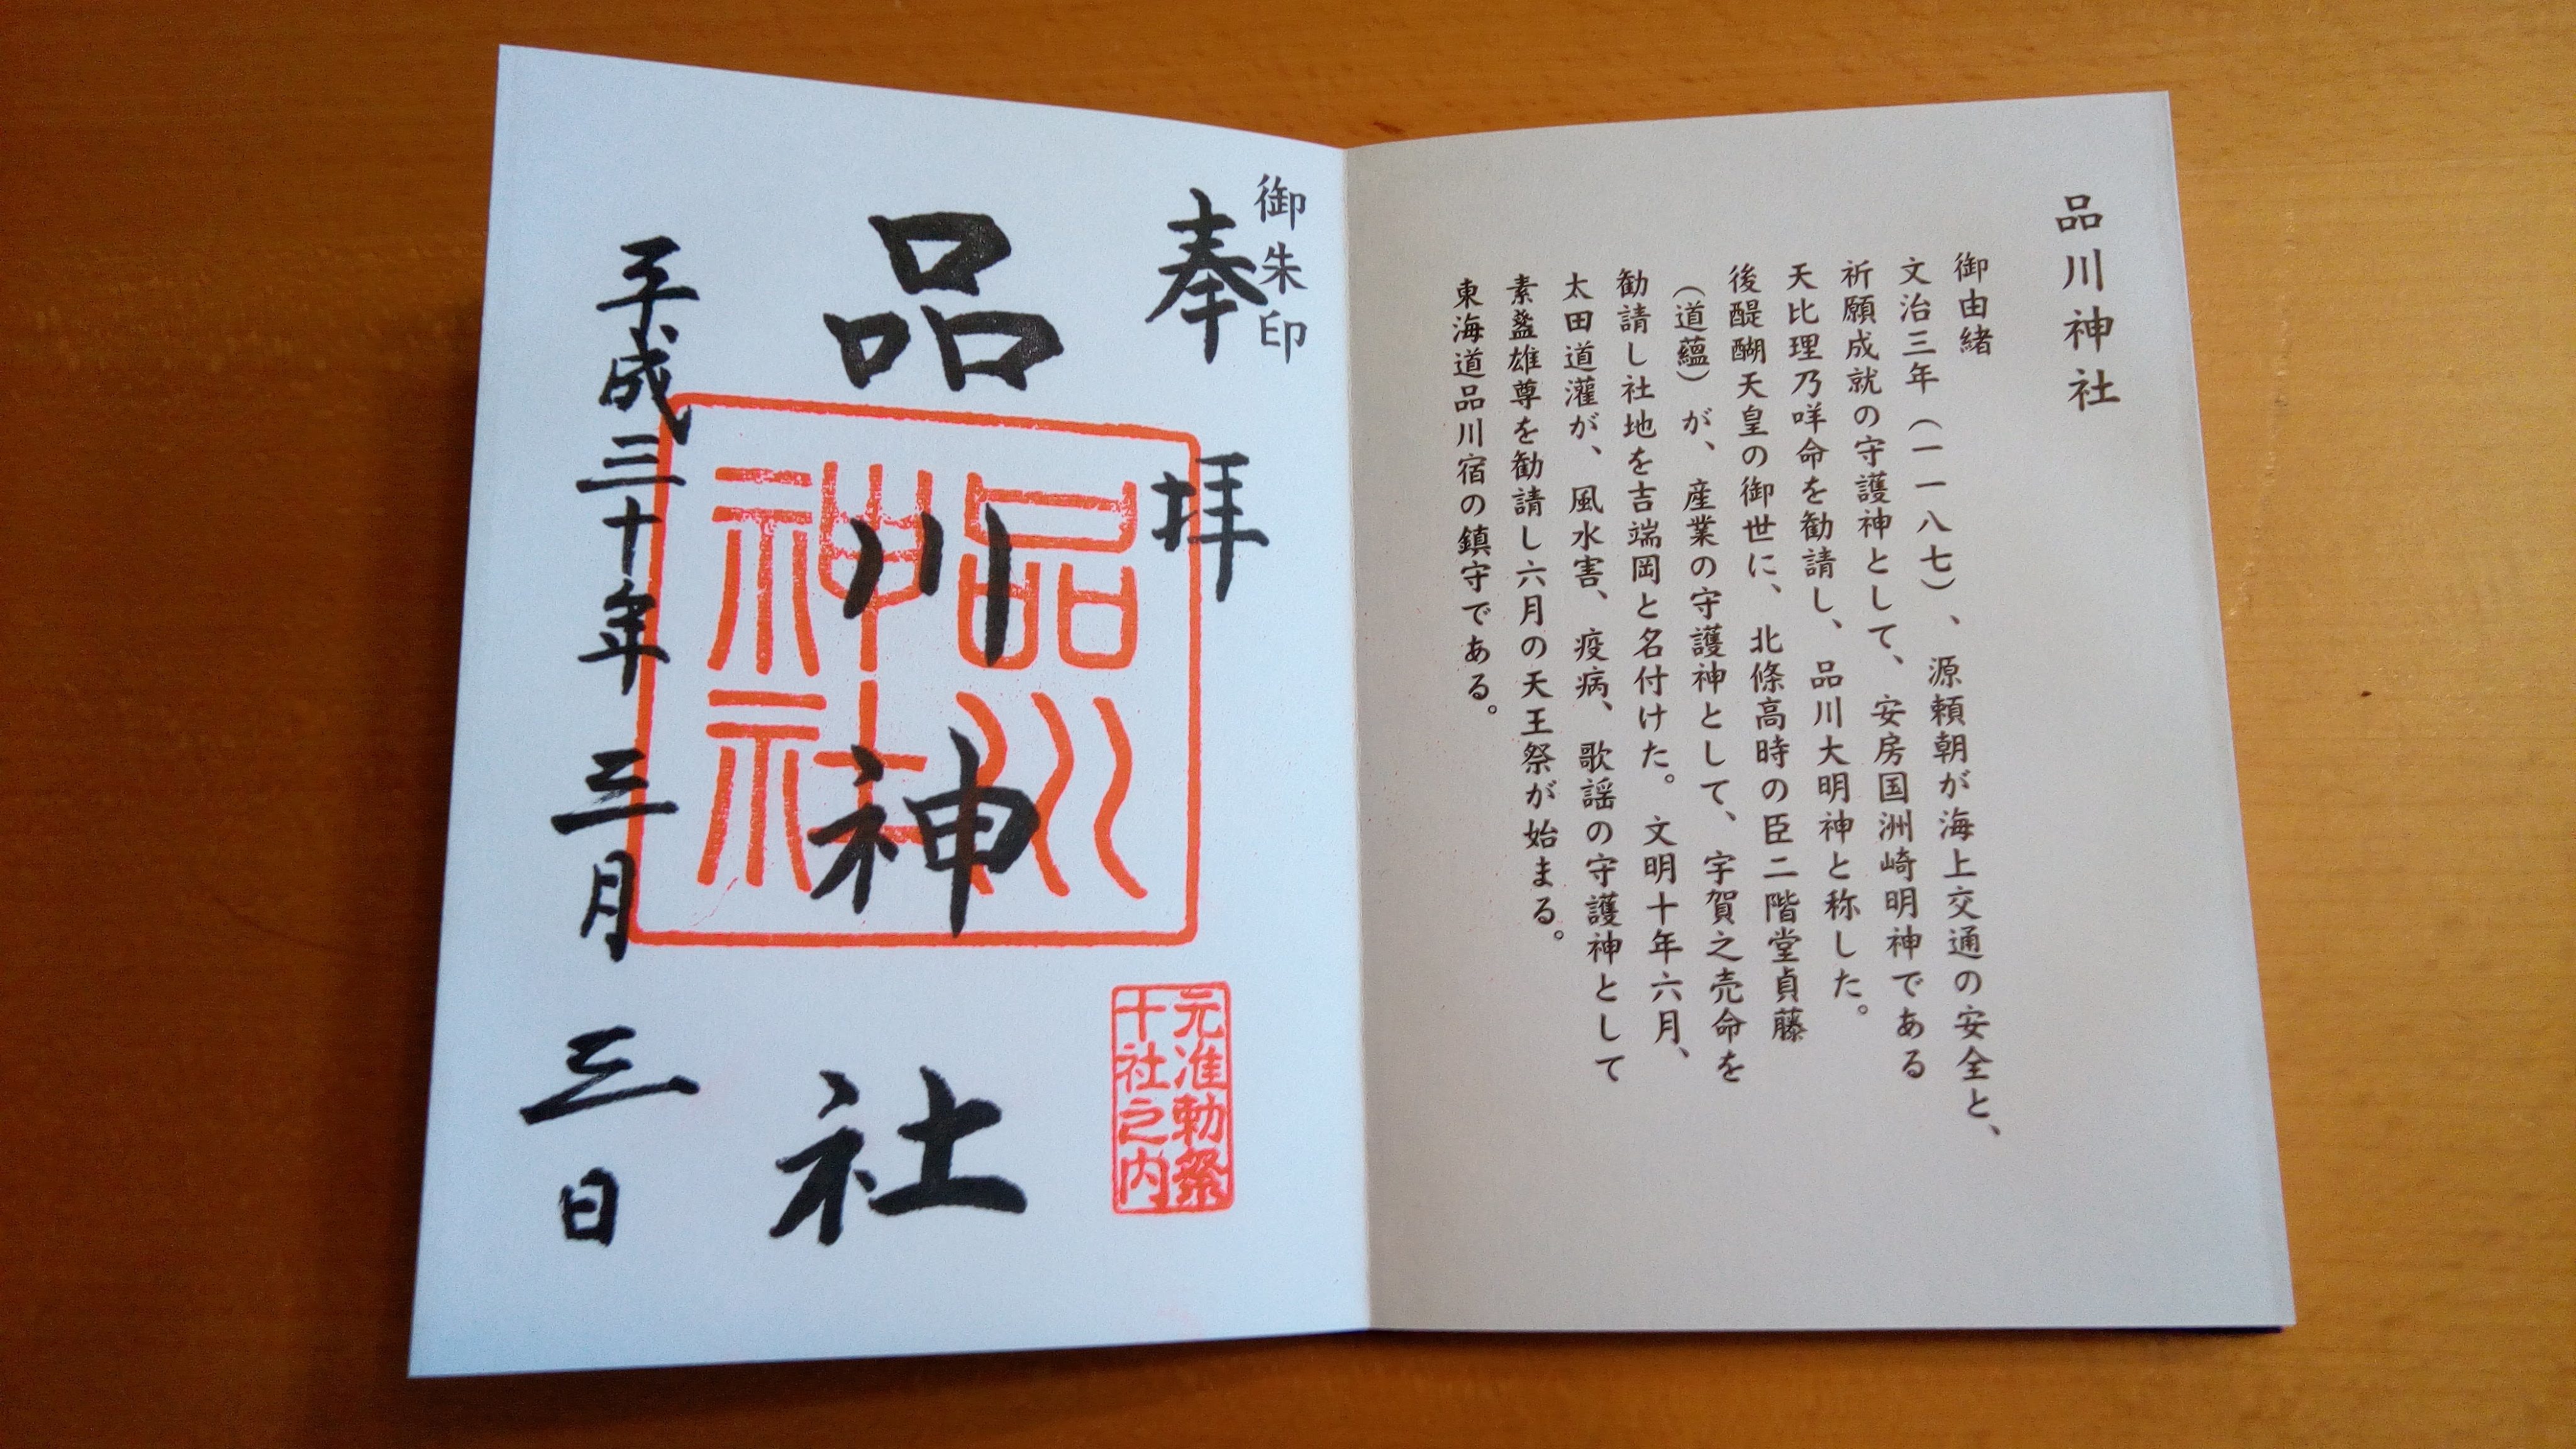 品川神社
御由緒
文治三年（一一八七）、源頼朝が海上交通の安全と、
祈願成就の守護神として、安房国洲崎明神である
天比理乃咩命を勧請し、品川大明神と称した。
後醍醐天皇の御世に、北條高時の臣二階堂貞藤
（道蘊）が、産業の守護神として、宇賀之売命を
勧請し社地を吉端岡と名付けた。文明十年六月、
太田道灌が、風水害、疫病、歌謡の守護神として
素盞雄尊を勧請し六月の天王祭が始まる。
東海道品川宿の鎮守である。
御朱印
奉拝
元准勅祭
十社之内
品川神社
品川
神社
平成三十年三月三日